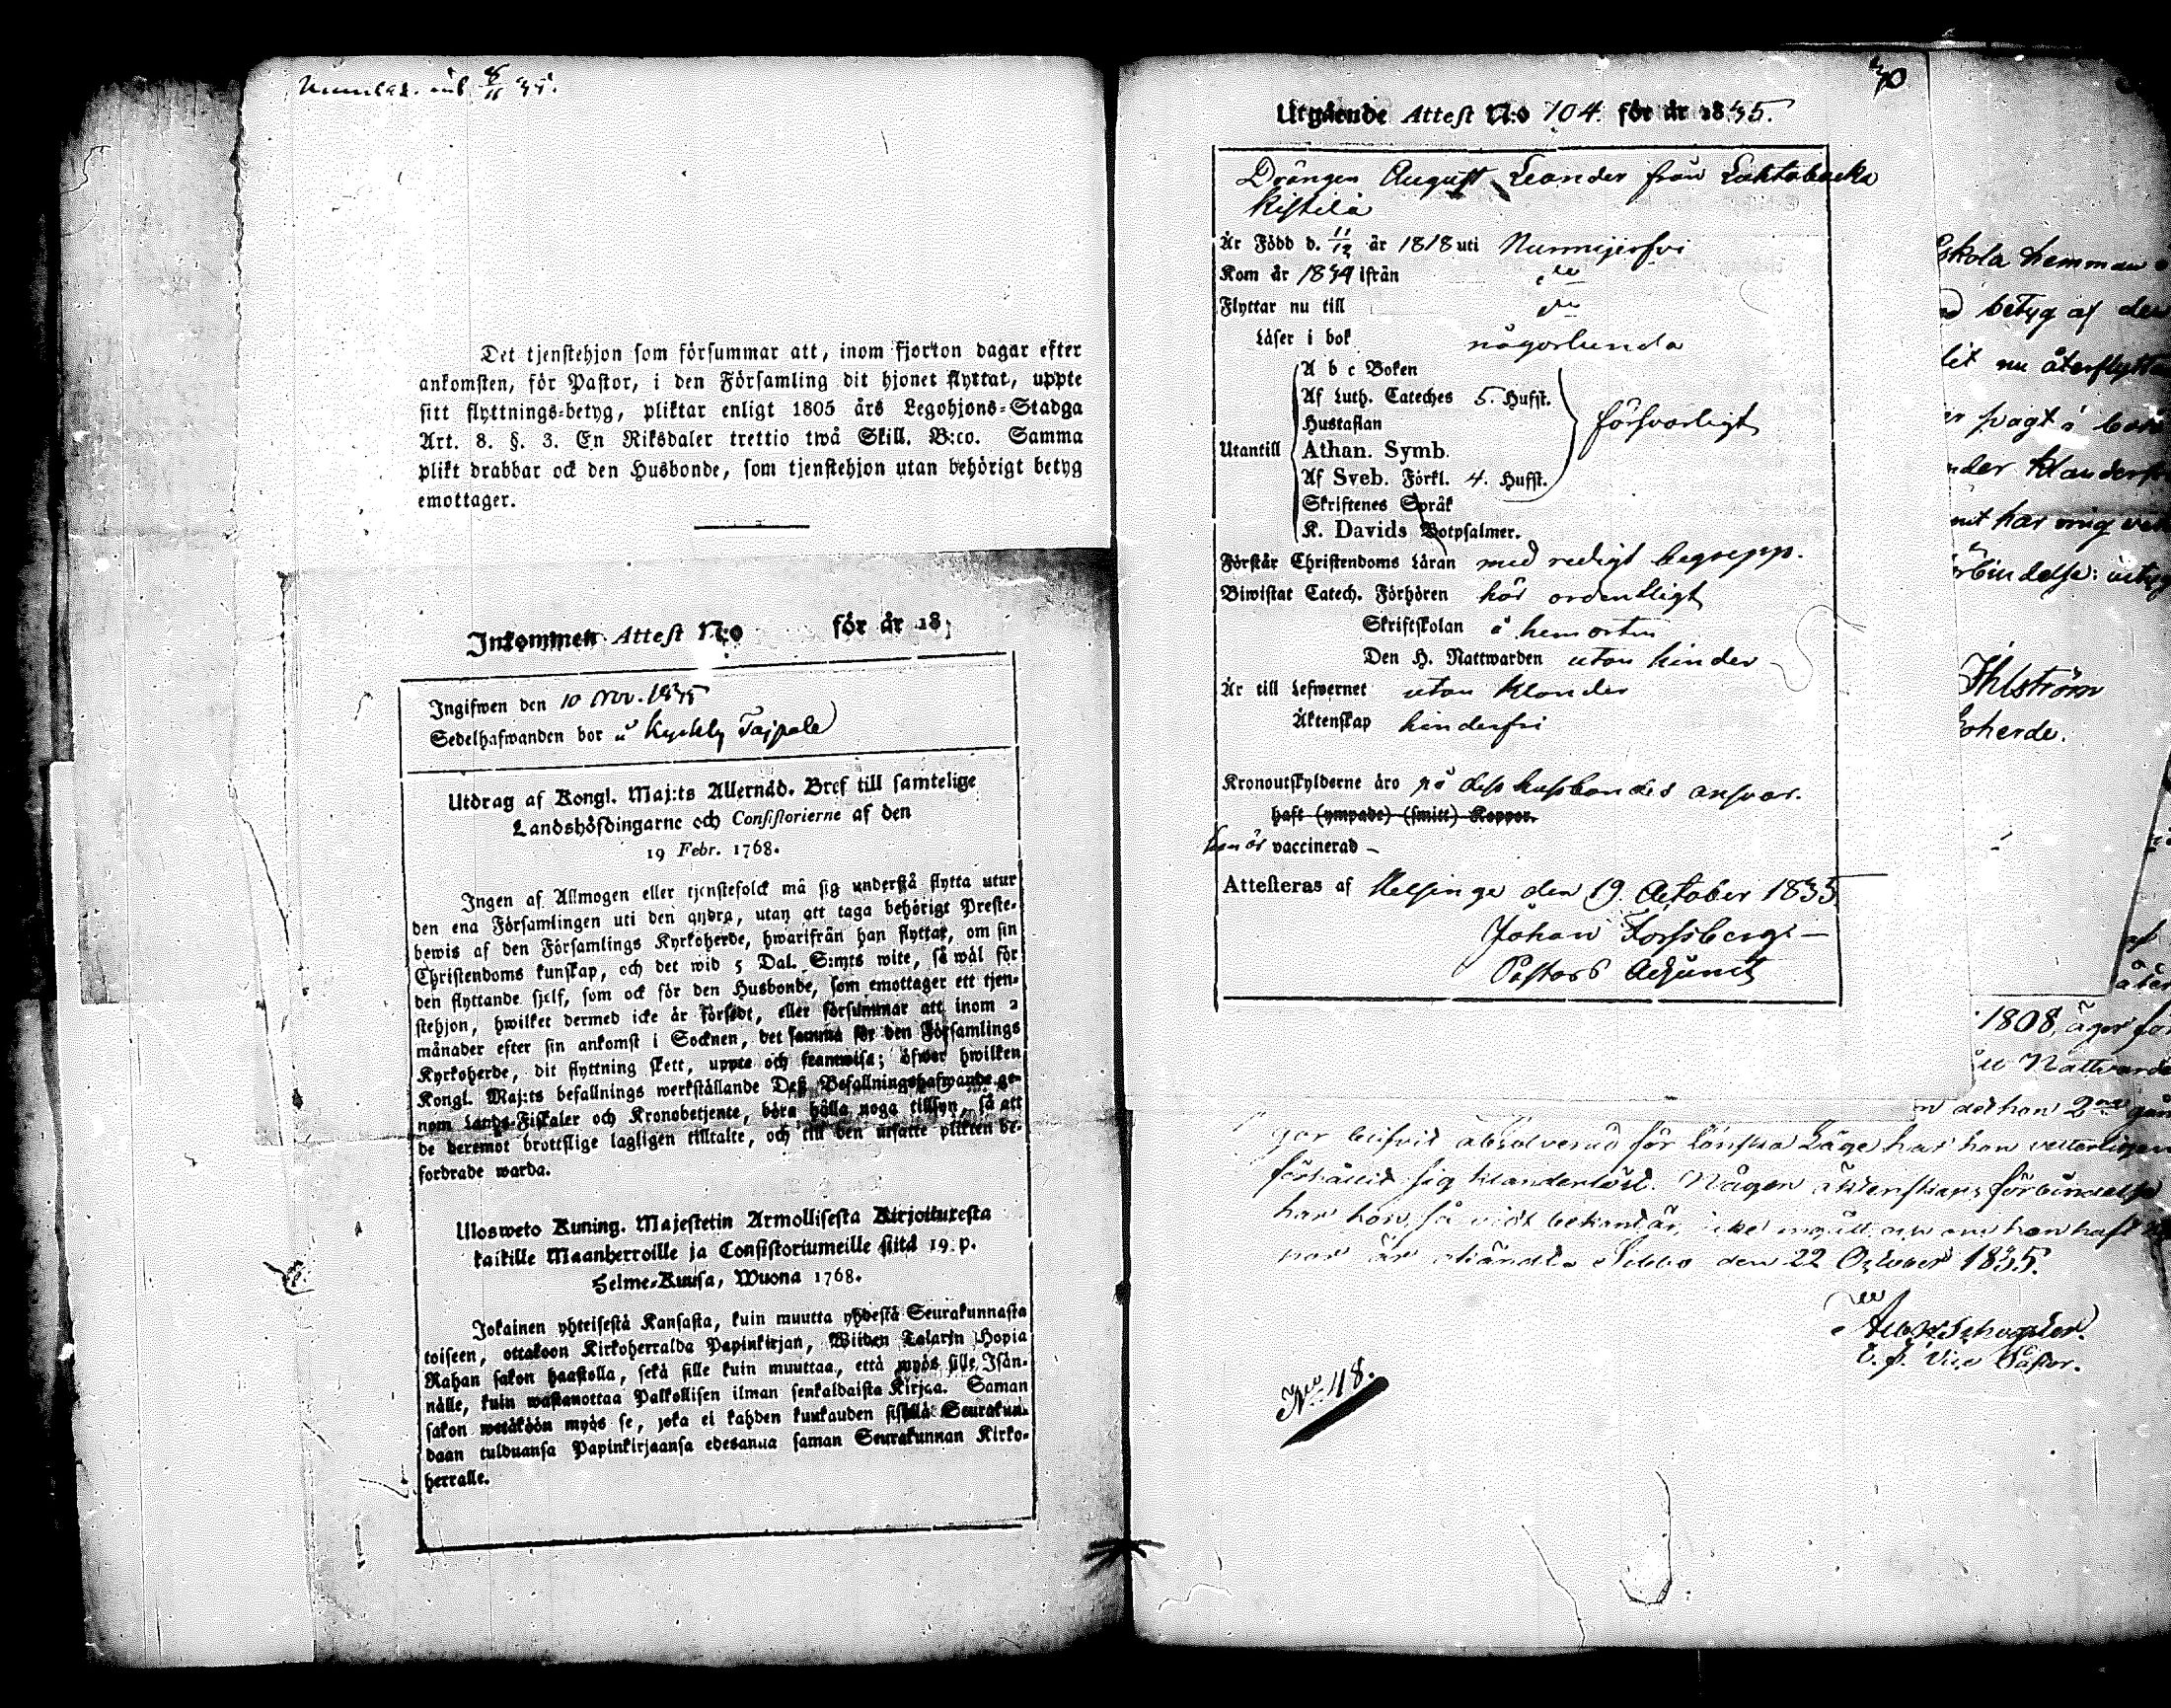 Det tjenstehjon som försummar att, inom fjorton dagar efter
ankomsten, för Pastor, i den Församling dit hjonet flyttat, uppte
sitt flyttnings-betyg, pliktar enligt 1805 års Legohjons-Stadga
Art. 8. §. 3. En Riksdaler trettio twå Skill. B:co. Samma
plikt drabbar ock den Husbonde, som tjenstehjon utan behörigt betyg
emottager.
Inkommen Attest N:o för år 18
Ingifwen den 10 Nov. 1835
Sedelhafwanden bor å Kyrkby Tajpale
Utdrag af Kongl. Maj:ts Allernåd. Bref till samtelige
Landshöfdingarne och Consistorierne af den
19 Febr. 1768.
Ingen af Allmogen eller tjenstefolck må sig understå flytta utur
den ena Församlingen uti den andra, utan att taga behörigt Preste-
bewis af den Församlings Kyrkoherde, hwarifrån han flyttat, om sin
Christendoms kunskap, och det wid 5 Dal. S:mts wite, så wäl för
den flyttande sjelf, som ock för den Husbonde, som emottager ett tjen-
stehjon, hwilket dermed icke är försedt, eller försummar att inom 2
månader efter sin ankomst i Socknen, det samma för den Församlings
Kyrkoherde, dit flyttning skett, uppte och framwisa; öfwer hwilken
Kongl. Maj:ts befallnings werkställande Deß Befallningshafwande ge-
nom Lands-Fiskaler och Kronobetjente, böra hålla noga tillsyn, så att
de deremot brottslige lagligen tilltalte, och till den utsatte plikten be-
fordrade warda.
Ulosweto Kuning. Majestetin Armollisesta Kirjoituxesta
kaikille Maanherroille ja Consistoriumeille siitä 19. p.
Helme-Kuusa, Wuona 1768.
Jokainen yhteisestä Kansasta, kuin muutta yhdestä Seurakunnasta
toiseen, ottakoon Kirkoherralda Papinkirjan, Wiiden Talarin Hopia
Rahan sakon haastolla, sekä sille kuin muuttaa, että myös sille Isän-
nälle, kuin wastanottaa Palkollisen ilman senkaldaista Kirjaa. Saman
sakon wetäköön myös se, joka ei kahden kuukauden sisällä Seurakun-
daan tulduansa Papinkirjaansa edesanna saman Seurakunnan Kirko-
herralle.
Utgående Attest N:o 104. för år 1835.
Drängen August Leander från Lahtabacka
Kistilä
Är Född d. 11/12 år 1818 uti Nurmijerfvi
Kom år 1834 ifrån
Flyttar nu till
Läser i bok någorlunda
A b c Boken
Af Luth. Cateches 5. Hufst.
Hustaflan försvarligt
Utantill Athan. Symb.
Af Sveb. Förkl. 4. Hufst.
Skriftenes Språk
K. Davids Botpsalmer.
Förstår Christendoms Läran med redigt begrepp.
Biwistat Catech. Förhören här ordentligt
Skriftskolan å hemorten
Den H. Nattwarden utan hinder
Är till Lefwernet utan klander
Äktenskap hinderfri
Kronoutskylderne äro på dess husbondes ansvar.
haft (ympade) (smitt) Koppor.
han är vaccinerad –
Attesteras af Helsinge den 19. October 1835
Johan Forssberg
Pastors Adjunct
Eskola hemman
betyg af den
nu återflytta
Ihlström
1808, äger
Nattvarde
det hon 2ne gån
absolverad för lönska Läge har hon
förhållit sig klanderlöst. Någon äktenskaps förbindelse
har hon, så vidt bekant är, icke hon haft
den 22 October 1835.
V. Pastor.
No 48.